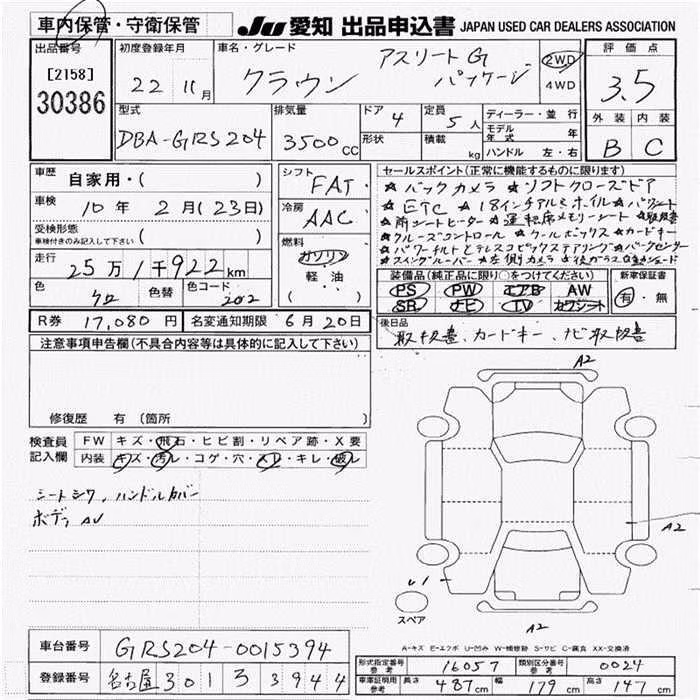 車内保管・守衛保管
JU 愛知 出品申込書 JAPAN USED CAR DEALERS ASSOCIATION
出品番号
[2158]
30386
初度登録年月
22 11月
車名・グレード
クラウン アスリートG パッケージ
2WD
4WD
評価点
3.5
外装 内装
B C
型式
DBA-GRS204
排気量
3500CC
ドア 4
形状
定員 5人
積載 kg
ディーラー・並行
モデル年式 年
ハンドル 左・右
車歴 自家用・( )
車検 10年 2月(23日)
受検形態
車検付きのみ記入して下さい ( )
走行 25万1千922km
色 クロ 色替 色コード 202
シフト FAT
冷房 AAC
燃料
ガソリン
軽・油
( )
セールスポイント(正常に機能するものに限ります)
☆バックカメラ ☆ソフトクローズドア
☆ETC ☆18インチアルミホイル ☆パワーシート
☆前シートヒーター ☆運転席メモリーシート ☆取扱書
☆クルーズコントロール ☆クールボックス ☆カードキー
☆パワーチルトとテレスコピックステアリング ☆パークセンサー
☆左側カメラ
装備品(純正品に限り○をつけてください)
PS PW エアB AW
SR ナビ TV カワシート
新車保証書
有・無
R券 17,080円 名変通知期限 6月20日
後日品
取扱書、カードキー、ナビ取扱書
注意事項申告欄(不具合内容等は具体的に記入して下さい)
修復歴 有(箇所
検査員記入欄
FW キズ・飛石・ヒビ割・リペア跡・X要
内装 キズ・汚レ・コゲ・穴・スレ・キレ・破レ
シートシワ、ハンドルカバー
ボディAU
A2
A2
U1
A2
スペア
A-キズ E-エクボ U-凹み W-補修跡 S-サビ C-腐食 XX-交換済
車台番号 GRS204-0015394
登録番号 名古屋 301 ろ 3944
形式指定番号 参考 16057 類別区分番号 参考 0024
車庫証明用 参考 長さ 487cm 幅 179cm 高さ 147cm